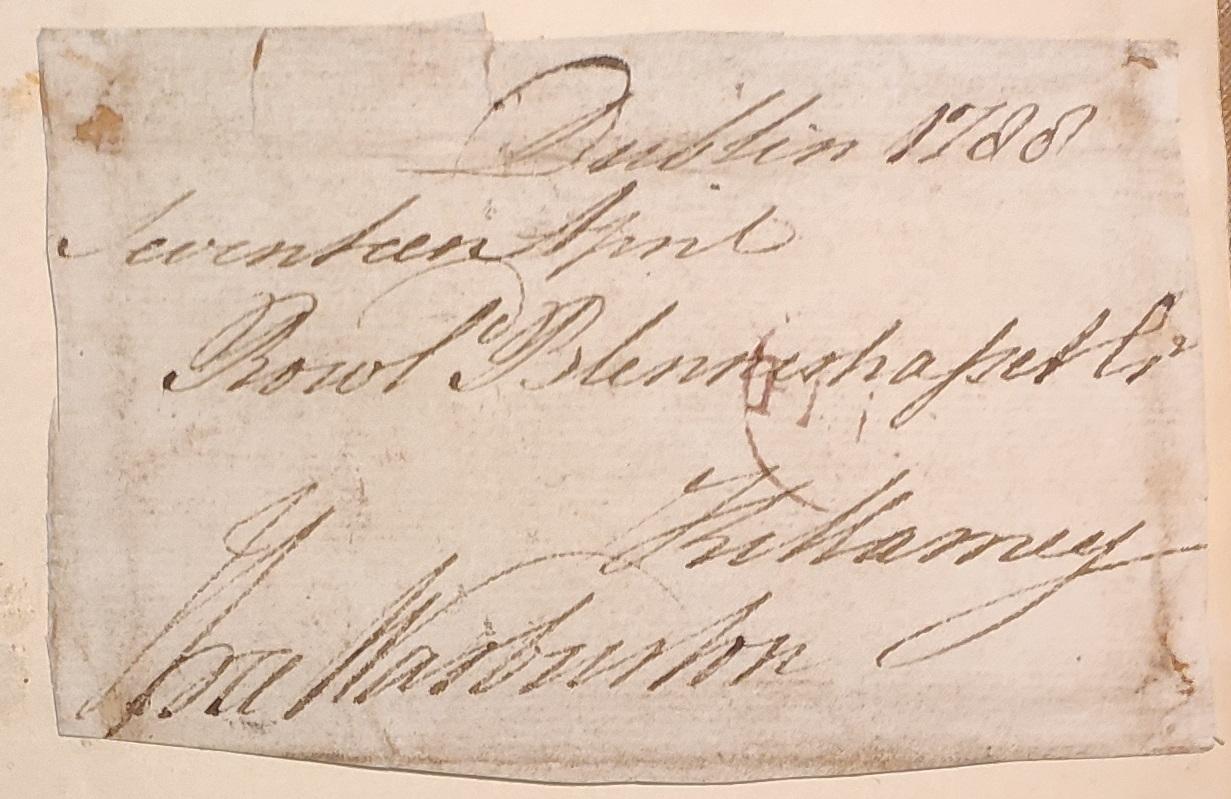 Dublin 1788
Seventeen April
Rowld Blennerhasset
Killarney
Warburton